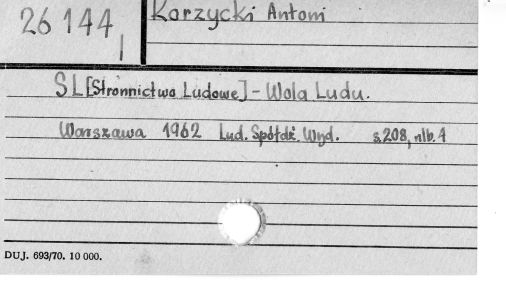 26 144, I
Korzycki Antoni
SL [Stronnictwo Ludowe] - Wola Ludu.
Warszawa 1962 Lud. Spółdz. Wyd. s. 208, nlb. 4
DUJ. 693/70. 10 000.